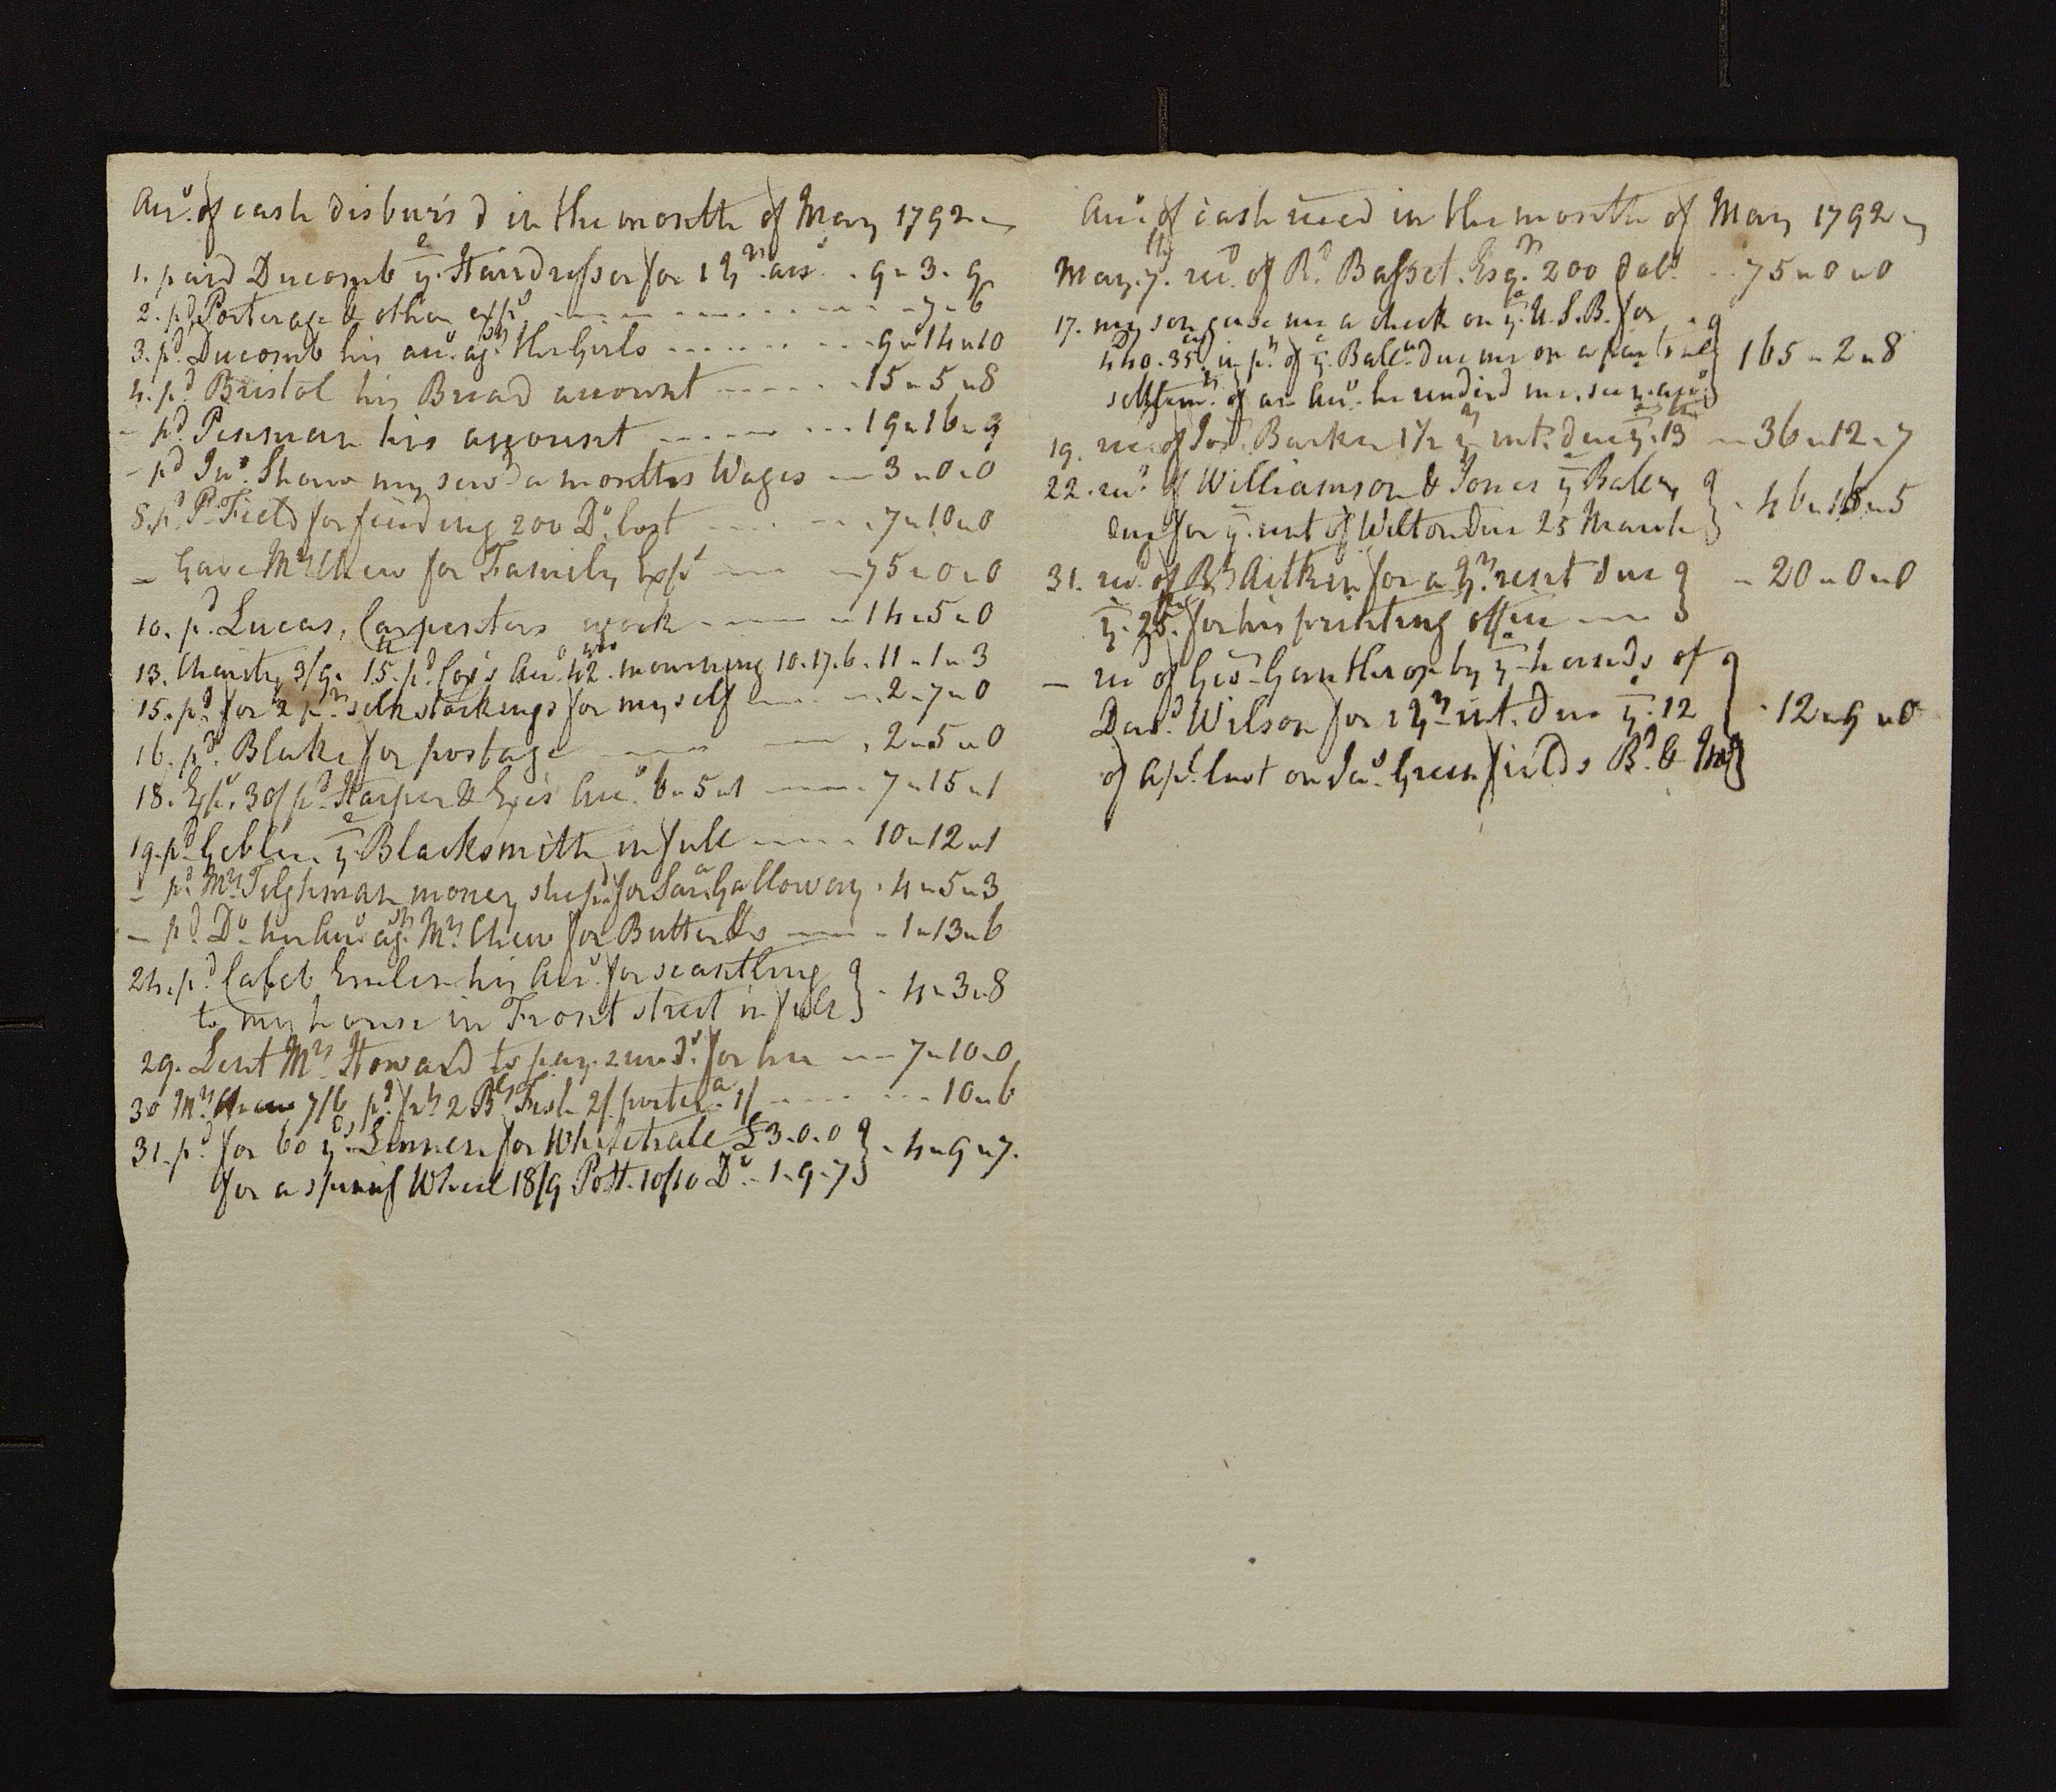 Acco. of cash disburs'd in the month of May 1792
1. paid Ducomb ye. Hairdresser for 1 qrs. acco. 9 " 3 " 9
2. pd. Porterage & other exps. 7 " 6
3. pd. Ducomb his acco. agst. the Girls 9 " 14 " 10
4. pd. Bristol his Bread account 15 " 5 " 8
- pd. Penman his account 19 " 16 " 3
- pd. Jno. Shaw my servt. a months Wages 3 " 0 " 0
8. pd. P. Field for finding 200 Ds. lost 7 " 10 " 0
- Gave Mrs. Chew for Family Exps. 75 " 0 " 0
10. pd. Lucas, Carpenters work 14 " 5 " 0
13. Charity 3/9. 15. pd. Cox's acco. mourning 10.17.6. 11 " 1 " 3
15. pd. for 2 pr. silk stockings for myself 2 " 7 " 0
16. pd. Blake for postage 2 " 5 " 0
18. Exps. 30/ pd. Harper & Acco. 6 " 5 " 1 7 " 15 " 1
19. pd. Gebler ye. Blacksmith in full 10 " 12 " 1
- pd. Mrs. Tilghman money she pd. for Sara. Galloway 4 " 5 " 3
- pd. Do. her acco. agst. Mrs. Chew for Butter &c 1 " 13 " 6
24. pd. Caleb Emlen his acco. for scantling
to my house in Front street in full } 4 " 3 " 8
29. Lent Mrs. Howard to pay for her 7 " 10 " 0
30 Mrs. Chew 7/6 pd. frt. 2 Bls. Fish 2/ portera. 1/ 10 " 6
31. pd. for 60 yds. Linnen for Whitehall £3.0.0
for a Wheel 18/9 Pott. 10/10 Do. 1.9.7 } 4 " 9 " 7.
Acco. of cash recd in the month of May 1792
May. 7th. recd. of Rd. Basset. Esqr. 200 dolls. 75 " 0 " 0
17. my son gave me a check on ye. U.S.B. for
440.35 in pt. of ye. Balce. due me on a partial
settlemt. of an acco. he renderd me, see ye. acco. } 165 " 2 " 8
19. recd of Jos. Barker 1 1/2 yrs int. due ye. 13th 36 " 12 " 7
22. recd. of Williamson & Jones ye Balce.
due for ye. rent of Wilton due 25 March } 46 " 16 " 5
31. recd. of Rt. Aitken for a qrs. rent due
ye. 25th. for his printing office } 20 " 0 " 0
- recd of Geo. Ganthrop by ye hands of
Davd. Wilson for 1 yrs. int. due ye. 12
of Apl. last on Jas. Greenfields Bd. & Mtg } 12 " 9 " 0